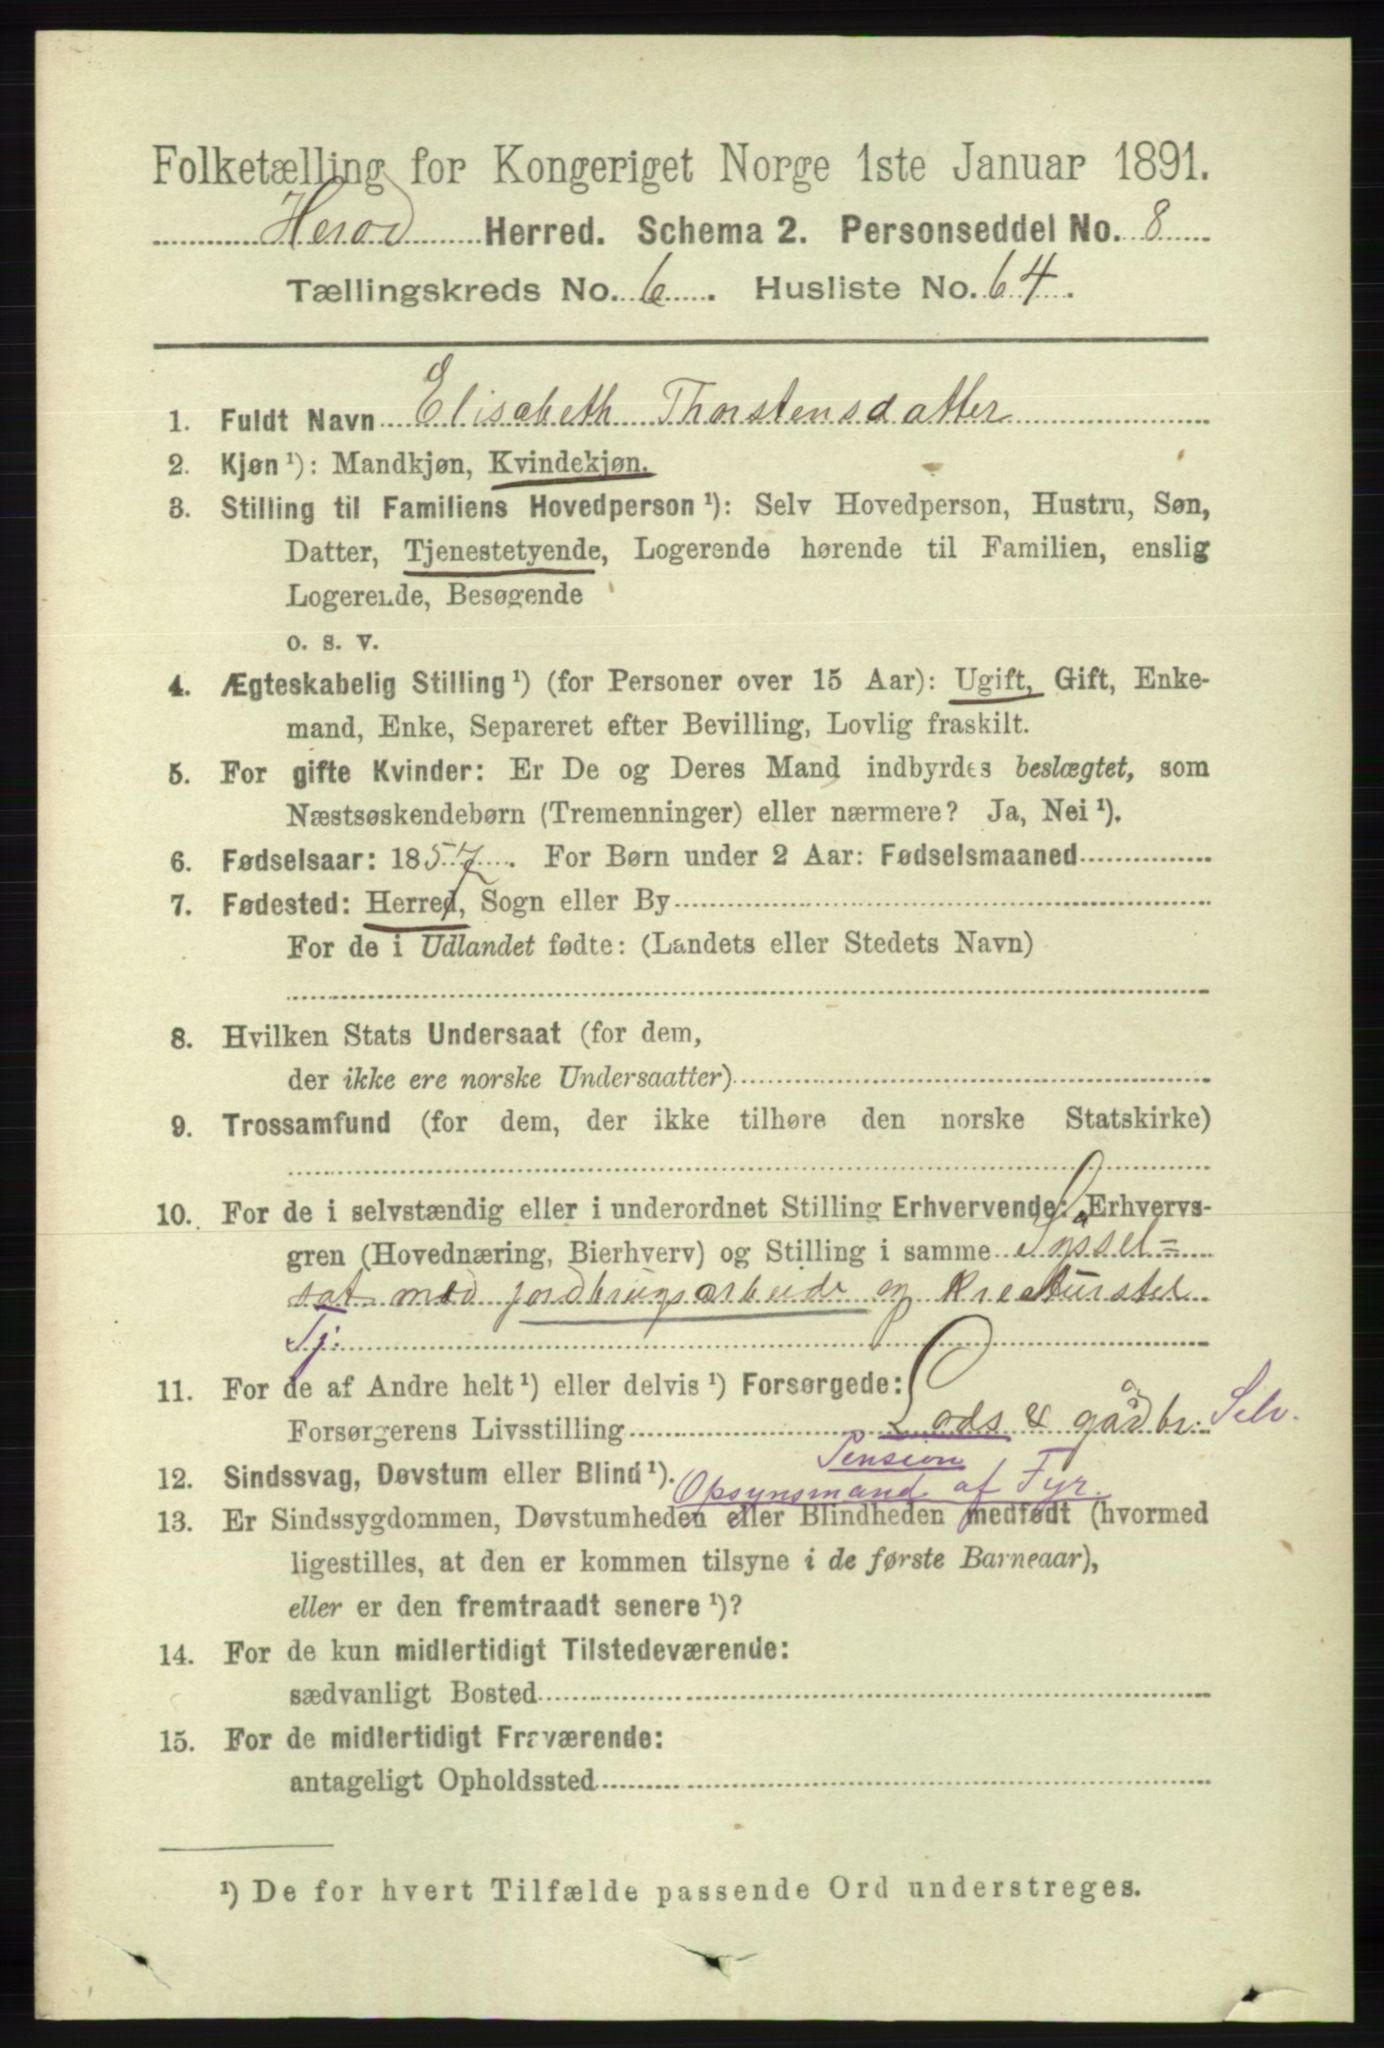 Folketælling for Kongeriget Norge 1ste Januar 1891.
Herød Herred. Schema 2. Personseddel No. 8
Tællingskreds No. 6. Husliste No. 64.
1. Fuldt Navn Elisabeth Thorstensdatter
2. Kjøn ¹): Mandkjøn, Kvindekjøn.
3. Stilling til Familiens Hovedperson ¹): Selv Hovedperson, Hustru, Søn,
Datter, Tjenestetyende, Logerende hørende til Familien, enslig
Logerende, Besøgende
o. s. v.
4. Ægteskabelig Stilling ¹) (for Personer over 15 Aar): Ugift, Gift, Enke-
mand, Enke, Separeret efter Bevilling, Lovlig fraskilt.
5. For gifte Kvinder: Er De og Deres Mand indbyrdes beslægtet, som
Næstsøskendebørn (Tremenninger) eller nærmere? Ja, Nei ¹).
6. Fødselsaar: 1857. For Børn under 2 Aar: Fødselsmaaned
7. Fødested: Herred, Sogn eller By
For de i Udlandet fødte: (Landets eller Stedets Navn)
8. Hvilken Stats Undersaat (for dem,
der ikke ere norske Undersaatter)
9. Trossamfund (for dem, der ikke tilhøre den norske Statskirke)
10. For de i selvstændig eller i underordnet Stilling Erhvervende: Erhvervs-
gren (Hovednæring, Bierhverv) og Stilling i samme Syssel=
sat med jordbrugsarbeide og Kreaturstel
Tj.
11. For de af Andre helt ¹) eller delvis ¹) Forsørgede:
Forsørgerens Livsstilling Lods & gårdbr. Selv.
Pension
12. Sindssvag, Døvstum eller Blind ¹). Opsynsmand af Fyr.
13. Er Sindssygdommen, Døvstumheden eller Blindheden medfødt (hvormed
ligestilles, at den er kommen tilsyne i de første Barneaar),
eller er den fremtraadt senere ¹)?
14. For de kun midlertidigt Tilstedeværende:
sædvanligt Bosted
15. For de midlertidigt Fraværende:
antageligt Opholdssted
¹) De for hvert Tilfælde passende Ord understreges.